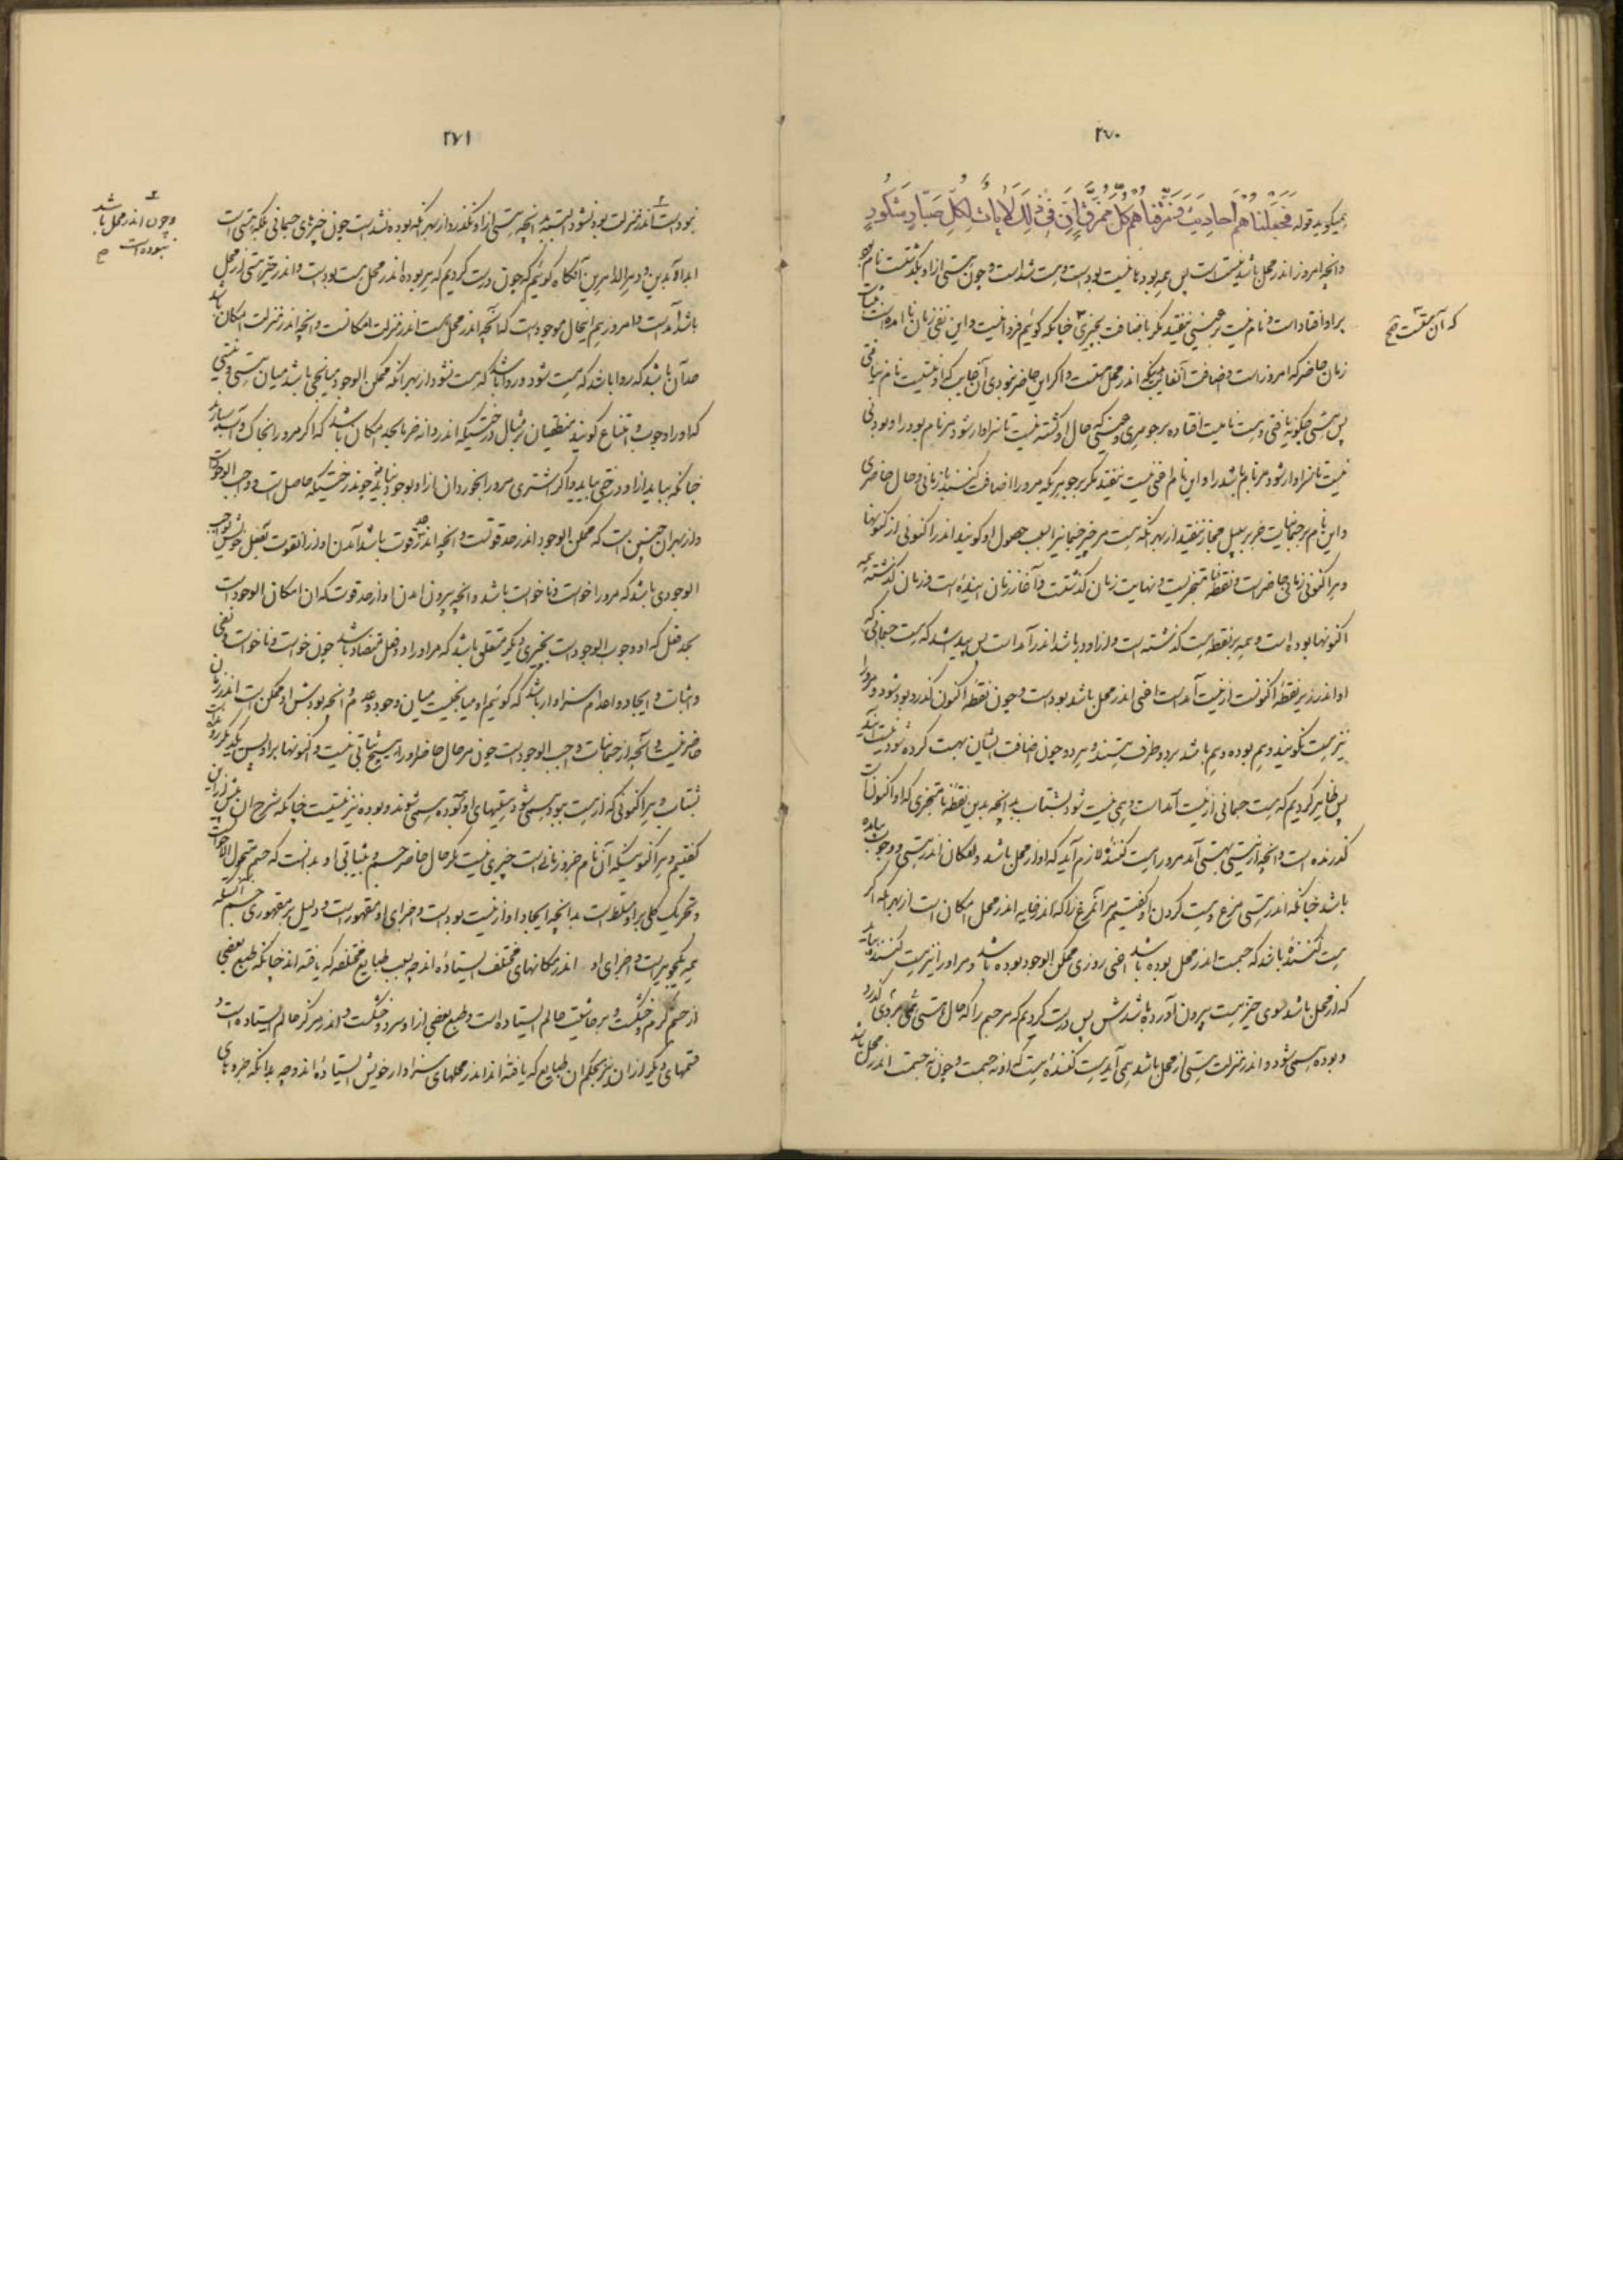 ۲۷۰
همیگوید قوله فَجَعَلْنَاهُمْ أَحَادِيثَ وَمَزَّقْنَاهُمْ كُلَّ مُمَزَّقٍ إِنَّ فِي ذَلِكَ لَآيَاتٍ لِكُلِّ صَبَّارٍ شَكُورٍ
وانچه امروز اندر محل باشد نیست است پس همه بودها نیست بوداست وهست شداست وچون هستی ازاو بگذشت نام بوده
براو افتاداست ونام نیست بر عینی نیفتد مگر باضافت بچیزی چنانکه گوئیم فردا نیست واین نفی زمان نا امده است
زمان حاضر که امروز است
پس هستی چگونه یافتی وهست نا هست افتاده برجوهری
نیست تا سزاوار شود مرنام باشد را واین نام اعنی نیست نیفتد مگر برجوهریکه مرورا اضافت کنند بازمانی وحال حاضری
واین نام برجسمانیات جز بر سبیل مجاز نیفتد از بهر انکه هست مرچیز جسمانیرا بسبب حصول او گویند اندر اکنونی از کنونها
وهر اکنونی زمانی حاضر است ونقطه نا متجزیست ونهایت زمان گذشتست وآغاز زمان آینده است وزمان گذشته همه
اکنونها بوده است وهمه برنقطه هست گذشته است وازاو در باشد اندر آمداست پس پیدا شد که هست جسمانی که
او اندر زیر نقطه اکنونست از نیست آمدست اعنی اندر محل باشد بودست وچون نقطه اکنون بگذرد بود شود ومرورا
نیز هست نگویند وهم بوده وهم باشد هردو طرف هستند وهردو چون اضافت ایشان بهست کرده شود نیست اند
پس ظاهر کردیم که هست جسمانی از نیست آمداست وهمی نیست شود بشتاب بدانچه بدین نقطه نا متجزی که او اکنونست
گذرنده است وانچه از نیستی بهستی آمد مرورا هست کننده لازم آید که او از محل باشد وامکان اندر هستی ووجوب بیامده
باشد چنانکه اندر هستی مرغ وهست کردن او گفتیم مرآنمرغ را که اندر خایه اندر محل امکان است از بهر انکه اگر
هست کننده باشد که جسمت اندر محل بوده باشد اعنی روزی ممکن الوجود بوده باشد ومر اورا نیز هست کننده بیاید
که از محل باشد سوی حیز هست بیرون آورده باشدش پس درست کردیم که مرجسم را که حال هستی
وبوده همی شود واندر منزلت هستی از محل باشد همی آید هست کننده هست که او نه جسمت وچون نه جسمت اندر محل باشد
که آن هست صح
۲۷۱
نبودست اندر منزلت بود نشود البته بدانچه هستی ازاو نگذرد از بهر انکه بوده نشدست چون چیزهای جسمانی بلکه هستی است
ابداه آبدین ودهر الداهرین آنگاه گوئیم که چون درست کردیم که هربوده اندر محل هست بودست واندر حیز هستی از محل
باشد آمدست وامروز هم اینحال موجودست که آنچه اندر محل هست اندر منزلت امکانست وانچه اندر منزلت امکان باشد
حد آن باشد که روا باشد که هست شود وروا باشد که هست نشود از بهر انکه ممکن الوجود میانجی باشد میان هستی ونیستی
که اورا وجوب وامتناع گویند منطقیان برمثال درختیکه اندر دانه خرما بحد امکان باشد که اگر مرورا خاک وآب بیابد
چنانکه بباید ازاو درختی بیاید واگر اشتری مرورا بخورد ان ازاو بوجود نیاید
واز بهر ان چنین است که ممکن الوجود اندر حد قوتست وانچه اندر حد قوت باشد آمدن او از انقوت بفعل خویش بواجب
الوجودی باشد که مرورا خواست وناخواست باشد وانچه بیرون امدن او از حد قوت که ان امکان الوجود است
بحد فعل که او وجوب الوجود است بچیزی دیگر متعلق باشد که مراورا دو فعل متضاد باشد چون خواست وناخواست ونفی
واثبات وایجاد واعدام سزاوار باشد که گوئیم او میانجیست میان وجود وعدم وانچه بودش او ممکن است اندر زمان
حاضر نیست وآنچه از جسمانیات واجب الوجود است چون مرحال حاضر اورا هیچ ثباتی نیست واکنونها براو پس یکدیگر گذرنده است
بشتاب وهر اکنونی که از هست ببود همی شود هستیهای او بوده همی شوند وبوده نیز نیستست چنانکه شرح ان پیش ازین
گفتیم وهر اکنونیکه آن نام جزو زمانست چیزی نیست مگر حال حاضر جسم وبی ثباتی او بدانست که جسم متحول الاحوال است
وتحریک کلی براو مسلط است بدانچه ایجاد او از نیست بودست واجزای او مقهور است ودلیل بر مقهوری جسم انست که
همه یک جوهریست واجزای او اندر مکانهای مختلف ایستاده اند چه بسبب طبایع مختلفه که یافته اند چنانکه طبع بعضی
از جسم گرم وخشکست وبرحاشیت عالم ایستاده است وطبع بعضی ازاو سرد وخشکست واندر مرکز عالم ایستاده است
وقسمهای دیگر از ان نیز بحکم ان طبایع که یافته اند اندر محلهای سزاوار خویش ایستاده اند وچه بدانکه جزوهای
وچون اندر محل باشد
نبوده است صح